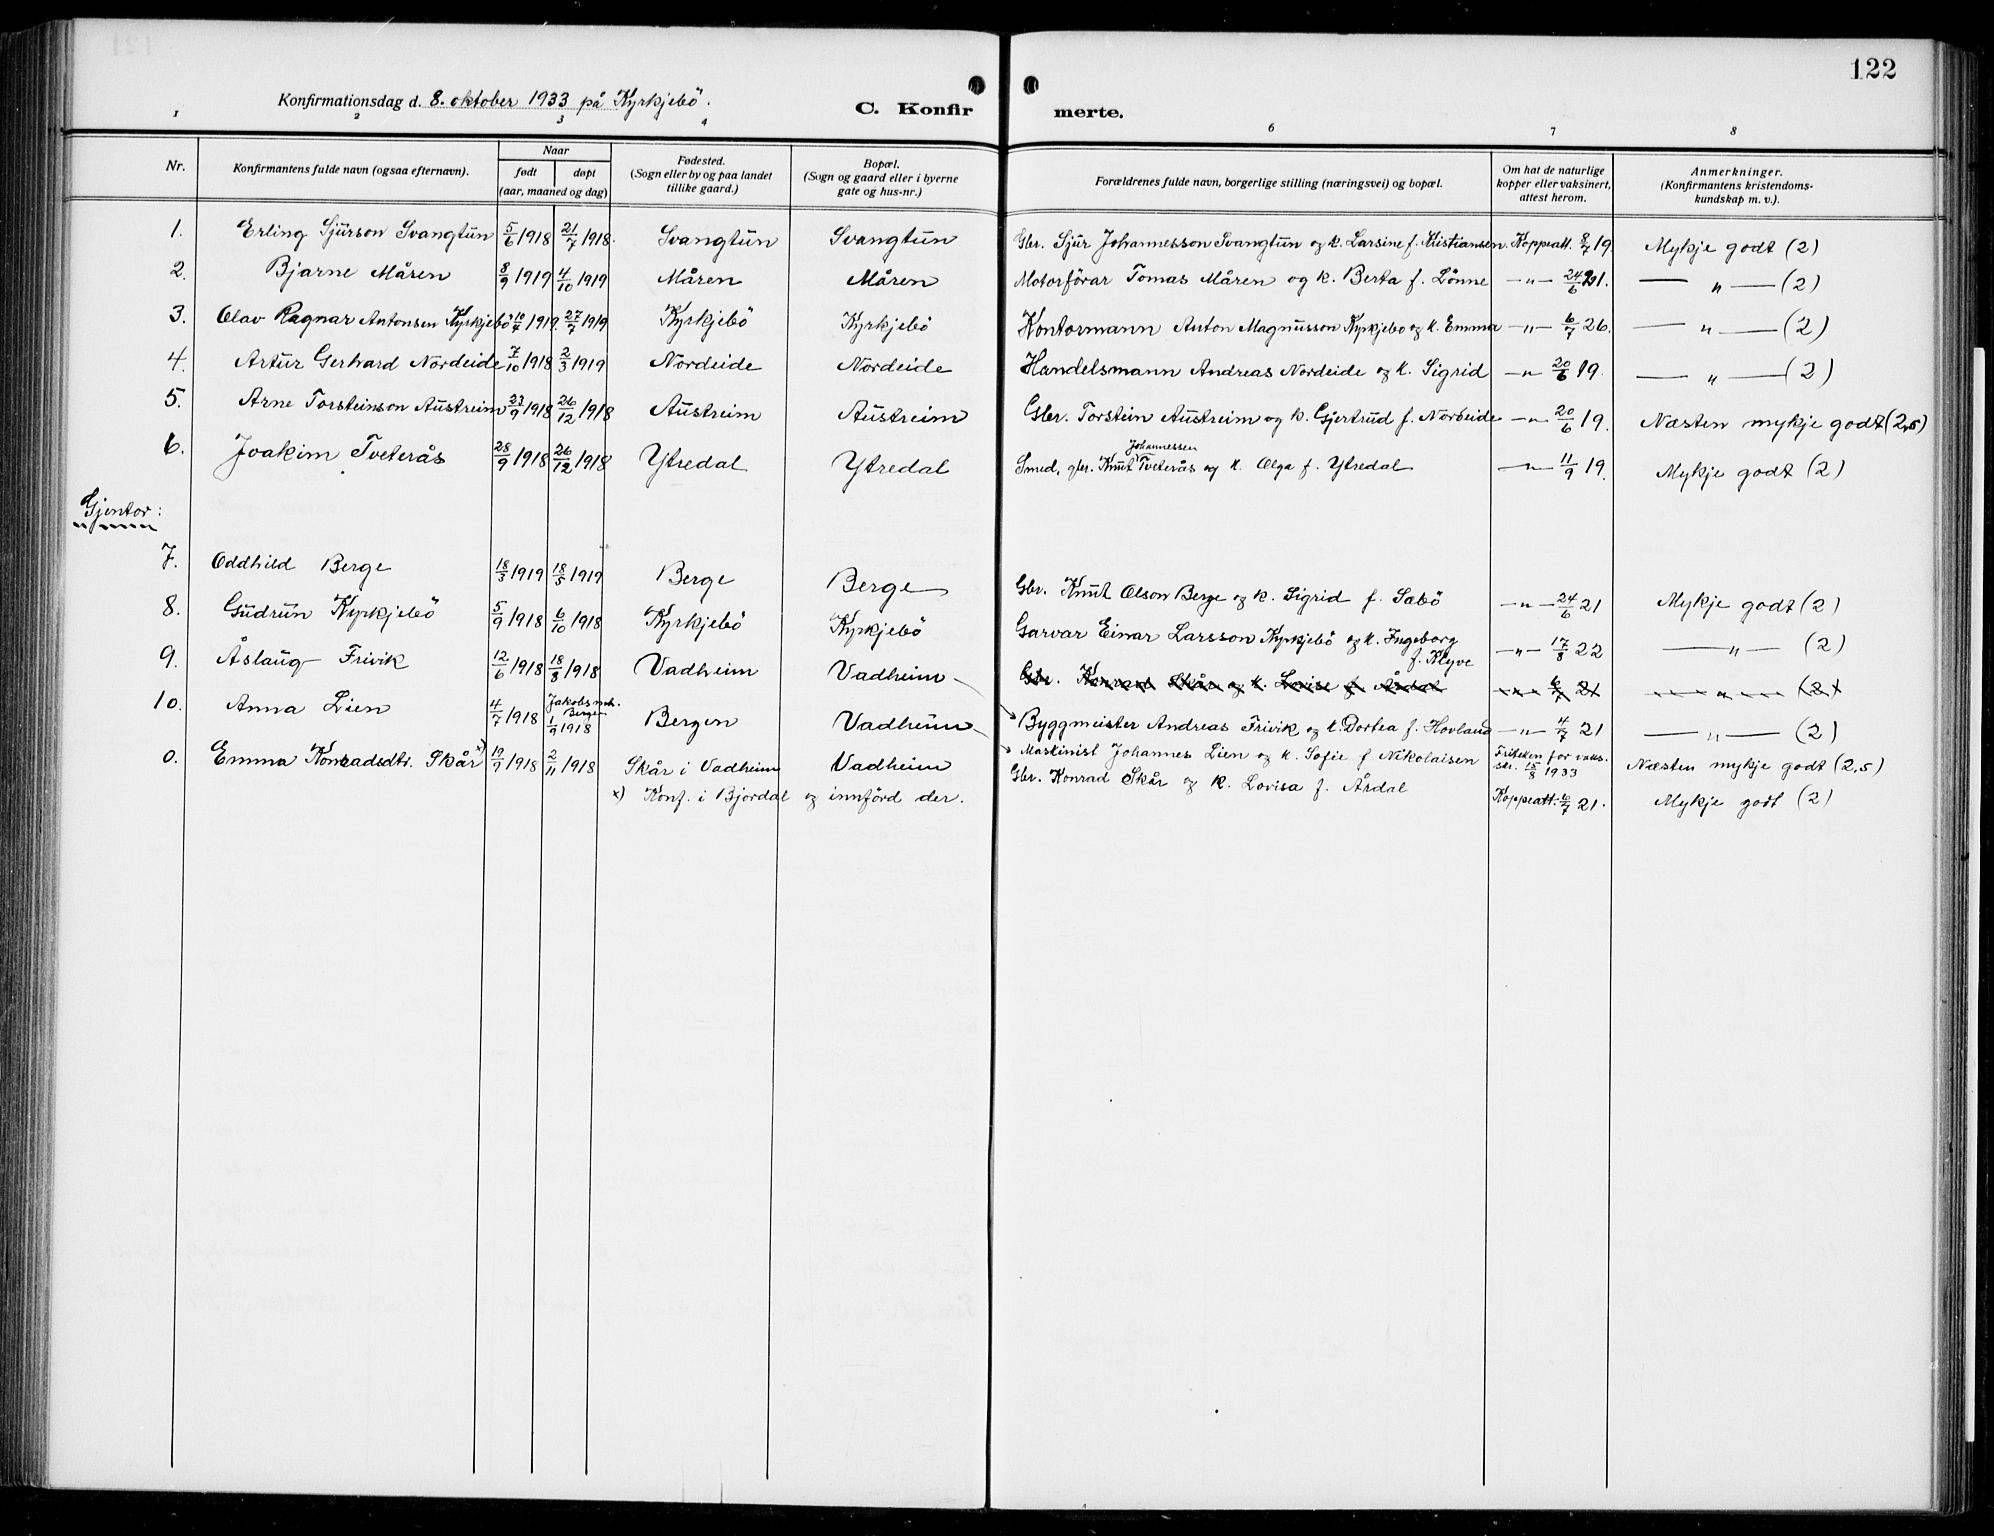 122
Konfirmationsdag d. 8. oktober 1933 på Kyrkjebö.
C. Konfir merte.
1 2 3 4 6 7 8
Nr. Konfirmantens fulde navn (ogsaa efternavn). Naar født døpt (aar, maaned og dag) Fødested. (Sogn eller by og paa landet tillike gaard.) Bopæl. (Sogn og gaard eller i byerne gate og hus-nr.) Forældrenes fulde navn, borgerlige stilling (næringsvei) og bopæl. Om hat de naturlige kopper eller vaksinert, attest herom. Anmerkninger. (Konfirmantens kristendoms-kundskap m. v.).
1. Erling Sjurson Svangtun 5/6 1918 21/7 1918. Svangtun Svangtun Gbr. Sjur Johannesson Svangtun og k. Larsine f. Kristiansen. Koppeatt. 8/7 19. Mykje godt (2)
2. Bjarne Måren 8/9 1919 4/10 1919 Måren Måren Motorförar Tomas Måren og k. Berta f. Lönne —"— 24/6 21. — " — (2)
3. Olav Ragnar Antonsen Kyrkjebö 10/7 1919. 27/7 1919 Kyrkjebö Kyrkjebö Kontormann Anton Magnusson Kyrkjebö og k. Emma —"— 6/7 26. — " — (2)
4. Artur Gerhard Nordeide 7/10 1918 2/3 1919 Nordeide Nordeide Handelsmann Andreas Nordeide og k. Sigrid —"— 20/6 19. — " — (2)
5. Arne Torsteinson Austreim 23/9 1918 26/12 1918 Austreim Austreim Gbr. Torstein Austreim og k. Gjertrud f. Nordeide —"— 20/6 19. Næsten mykje godt (2,5)
6. Joakim Tveterås 28/9 1918 26/12 1918 Ytredal Ytredal Smed, gbr. Knut Johannessen Tveterås og k. Olga f. Ytredal —"— 11/9 19. Mykje godt (2)
Gjentor:
7. Oddhild Berge 18/3 1919 18/5 1919 Berge Berge Gbr. Knut Olson Berge og k. Sigrid f. Sæbö —"— 24/6 21 Mykje godt (2)
8. Gudrun Kyrkjebö 5/9 1918 6/10 1918 Kyrkjebö Kyrkjebö Garvar Einar Larsson Kyrkjebö og k. Ingeborg f. Klyve —"— 17/8 22 — " — (2)
9. Åslaug Frivik 12/6 1918 18/8 1918 Vadheim Vadheim Gbr. Konrad Skår og k. Lovise f. Årdal —"— 6/7 21 — " — (2)
10. Anna Lien 4/7 1918 Jakobs mh. Bergen 1/9 1918 Bergen Vadheim Byggmeister Andreas Frivik og k. Dortea f. Hovland —"— 4/7 21 — " — (2)
0. Emma Konradsdtr. Skår x) 19/9 1918 2/11 1918 Skår i Vadheim Vadheim Maskinist Johannes Lien og k. Sofie f Nikolaisen Friteken for vaks. 15/8 1933 Næsten mykje godt (2,5)
x) Konf. i Bjordal og innförd der. Gbr. Konrad Skår og k. Lovisa f. Årdal Koppeatt. 6/7 21. Mykje godt (2)